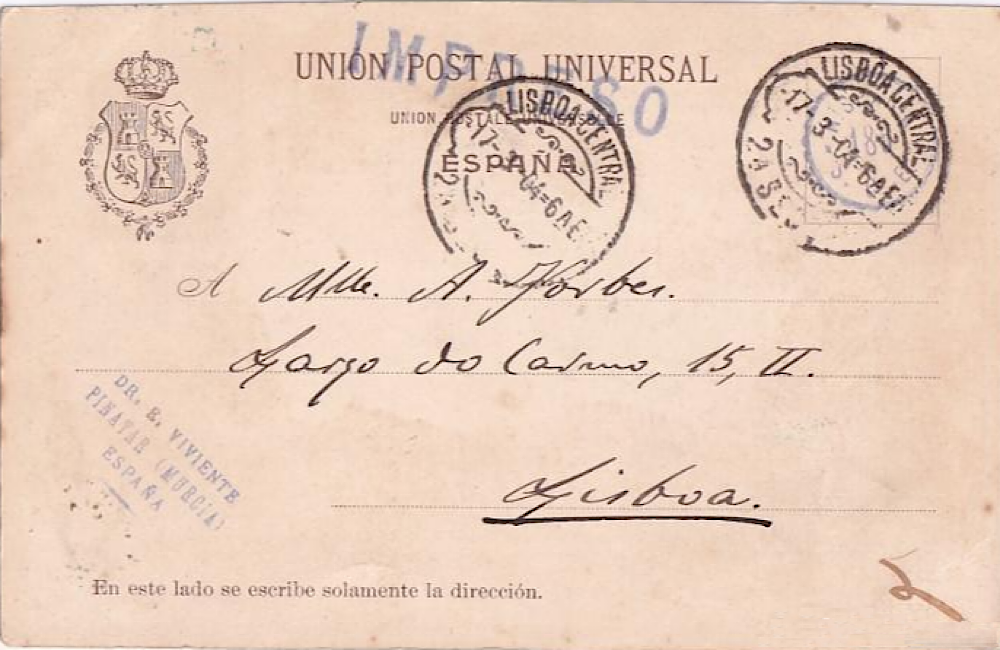 UNIÓN POSTAL UNIVERSAL
IMPRESO
UNION POSTALE UNIVERSELLE
ESPAÑA
LISBOA CENTRAL
17-3-04=6A
2A SEC
LISBOA CENTRAL
17-3-04=6A
A Mlle. A. Forbes.
Largo do Carmo, 15, II.
Lisboa.
DR. E. VIVIENTE
PINATAR (MURCIA)
ESPAÑA
En este lado se escribe solamente la dirección.